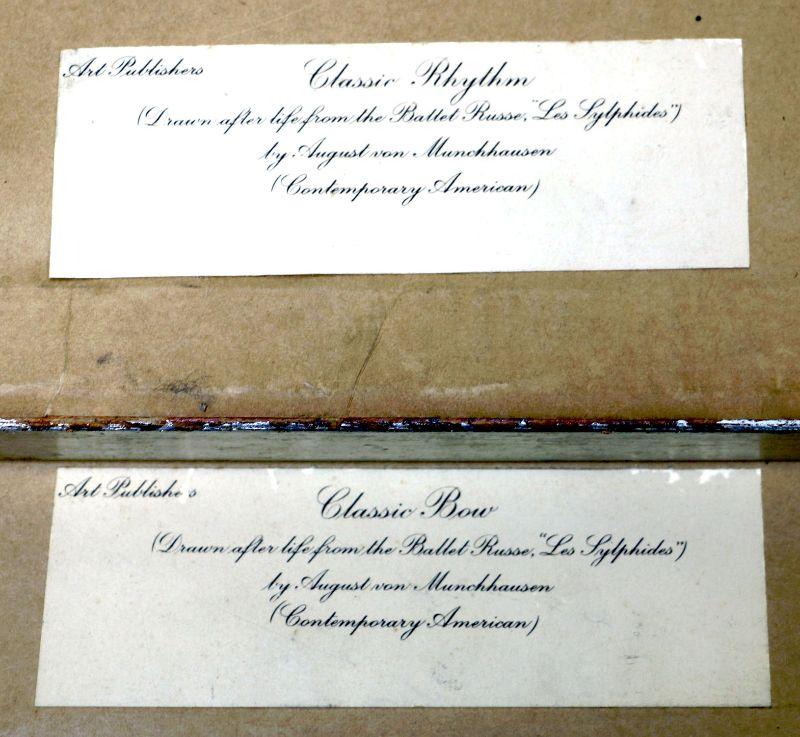 Art Publishers
Classic Rhythm
(Drawn after life from the Ballet Russe, "Les Sylphides")
by August von Munchhausen
(Contemporary American)
Art Publishe s
Classic Bow
(Drawn after life from the Ballet Russe, "Les Sylphides")
by August von Munchhausen
(Contemporary American)